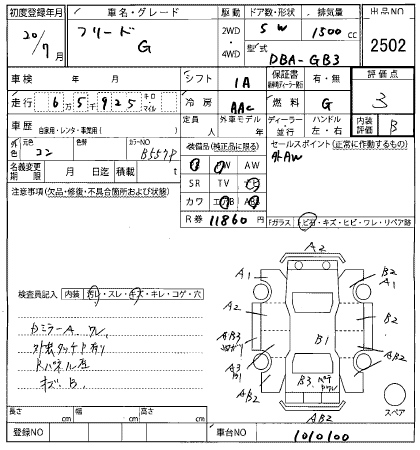 初度登録年月 車名・グレード 駆動 ドア数・形状 排気量 出品NO
20/7月 フリード G 2WD・4WD 5 W 1500cc 2502
型式 DBA-GB3
車検 年 月 シフト IA 保証書 有・無 評価点
走行 6万5千925 キロ・マイル 冷房 AAC 燃料 G 3
車歴 自家用・レンタ・事業用( ) 定員 人 外車モデル 年 ディーラー・並行 ハンドル 左・右 内装評価 B
外色 元色 コン 色替 カラーNO B557P 装備品(純正品に限る) セールスポイント(正常に作動するもの)
名義変更期限 月 日迄 積載 t PW AW 外AW
注意事項(欠品・修復・不具合箇所および状態) SR TV ナビ
カワ エアB ABS
R券 11860円
Fガラス トビ石・キズ・ヒビ・ワレ・リペア跡
検査員記入 内装 汚レ・スレ・キズ・キレ・コゲ・穴
カミラーA ワレ
外装タッチP有り
Rパネル歪
キズB
A2
A1 B2 A1
A2 B2
AB3
B1
A3 B1
AB2 B3 AB2
AB2
スペア
長さ cm 幅 cm 高さ cm
登録NO 車台NO 1010100